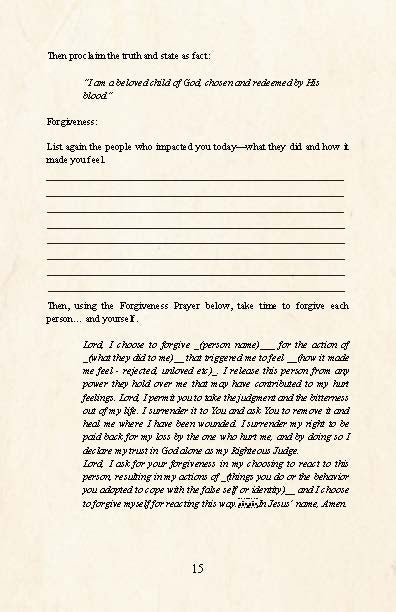 Then proclaim the truth and state as fact:
"I am a beloved child of God, chosen and redeemed by His
blood."
Forgiveness:
List again the people who impacted you today—what they did and how it
made you feel.
Then, using the Forgiveness Prayer below, take time to forgive each
person… and yourself.
Lord, I choose to forgive _(person name)___ for the action of
_(what they did to me)__ that triggered me to feel __(how it made
me feel - rejected, unloved etc)_. I release this person from any
power they hold over me that may have contributed to my hurt
feelings. Lord, I permit you to take the judgment and the bitterness
out of my life. I surrender it to You and ask You to remove it and
heal me where I have been wounded. I surrender my right to be
paid back for my loss by the one who hurt me, and by doing so I
declare my trust in God alone as my Righteous Judge.
Lord, I ask for your forgiveness in my choosing to react to this
person, resulting in my actions of _(things you do or the behavior
you adopted to cope with the false self or identity)__ and I choose
to forgive myself for reacting this way. In Jesus' name, Amen.
15